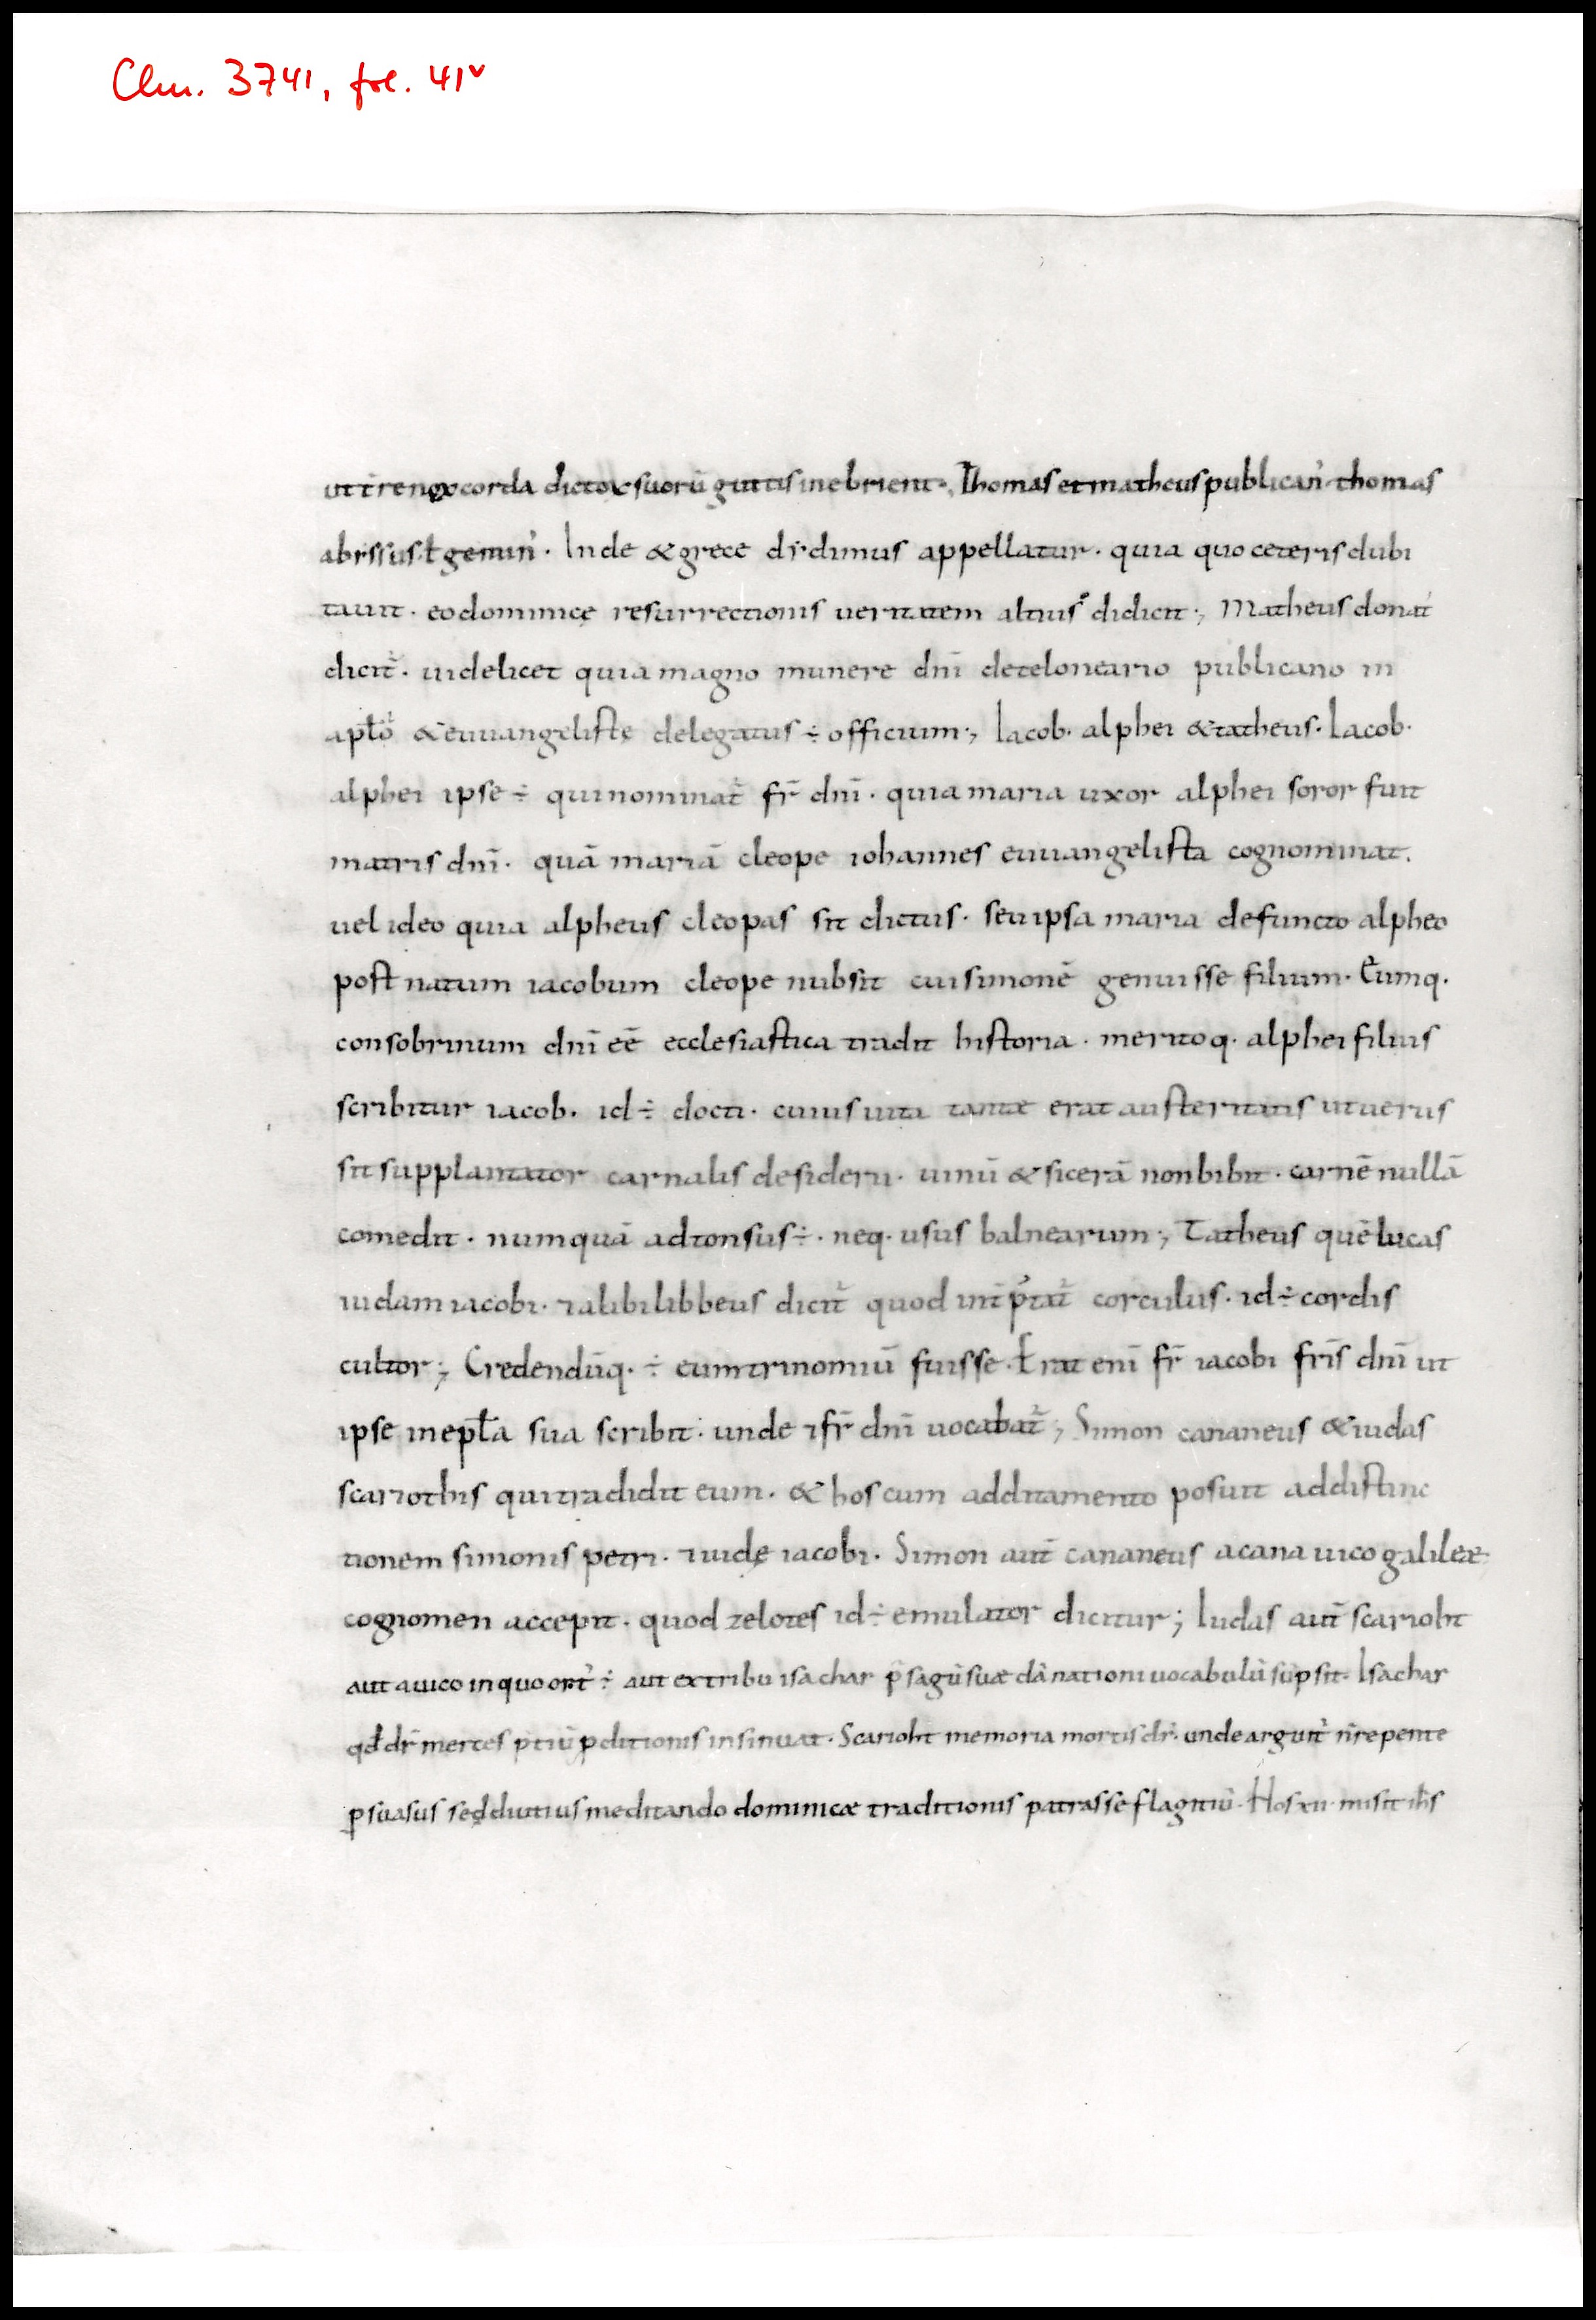 Clm. 3741, fol. 41v
ut t̅renoꝝ corda dictoꝝ suorū guttis inebrient·, Thomas et matheus publican᾿· thomas
abyssus· ł gemin᾿· Inde & grece dẏdimus appellatur· quia quo ceteris dubi
tauit· eo dominicę resurrectionis ueritatem altius didicit·, Matheus donat᾿
dicit᷑· uidelicet quia magno munere dn̄i de teloneario publicano in
apto᷑ & euuangeliste delegatus ÷ officium·, Iacob· alphei & tatheus· Iacob·
alphei ipse ÷ qui nominat᷑ fr̄ dn̄i· quia maria uxor alphei soror fuit
matris dn̄i· quā mariā cleope iohannes euuangelista cognominat.
uel ideo quia alpheus cleopas sit dictus· seu ipsa maria defuncto alpheo
post natum iacobum cleope nubsit cui simonē genuisse filium· Eumq·
consobrinum dn̄i eē ecclesiastica tradit historia· meritoq· alphei filius
scribitur iacob· id ÷ docti· cuius uita tantæ erat austeritatis ut uerus
sit supplantator carnalis desiderii· uinū & sicerā non bibit· carnē nullā
comedit· numquā adtonsus ÷· neq· usus balnearum·, Tatheus quē lucas
iudam iacobi· ⁊ alibi libbeus dicit᷑ quod int̄p̄tat᷑ corculus· id ÷ cordis
cultor·, Credendūq· ÷ eum trinomiū fuisse· Erat eni̅ fr̄ iacobi fr̄is dn̄i ut
ipse in epƚa sua scribit· unde ⁊ fr̄ dn̄i uocabat᷑·, Simon cananeus & iudas
scariothis qui tradidit eum· & hos cum additamento posuit ad distinc
tionem simonis petri· ⁊ iudę iacobi· Simon aut̄ cananeus a cana uico galileæ
cognomen accepit· quod zelotes id ÷ emulator dicitur; Iudas aut̄ scarioht
aut a uico in quo ort᾿ ÷ aut ex tribu isachar p̄sagiū suæ dānationi uocabulū sūpsit· Isachar
qd̄ dr̄ merces ptiū ꝑditionis insinuat· Scarioht memoria mortis dr̄· unde arguit᷑ n̄ repente
ꝑsuasus sed diutius meditando dominicæ traditionis patrasse flagitiū· Hos xii· misit ih̄s